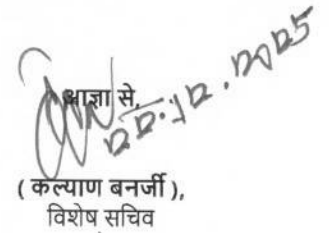 आज्ञा से,
22.12.2025
( कल्याण बनर्जी ),
विशेष सचिव